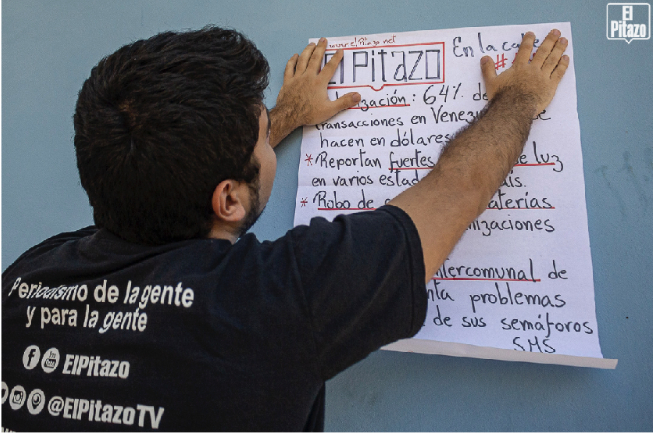 El Pitazo
www.elPitazo.net
El Pitazo En la calle
#
64% de
transacciones en
hacen en dólares
* Reportan fuertes de luz
en varios
* Robo de baterías
intercomunal de
problemas
de sus semáforos
SMS
Periodismo de la gente
y para la gente
f You Tube ElPitazo
@ElPitazoTV